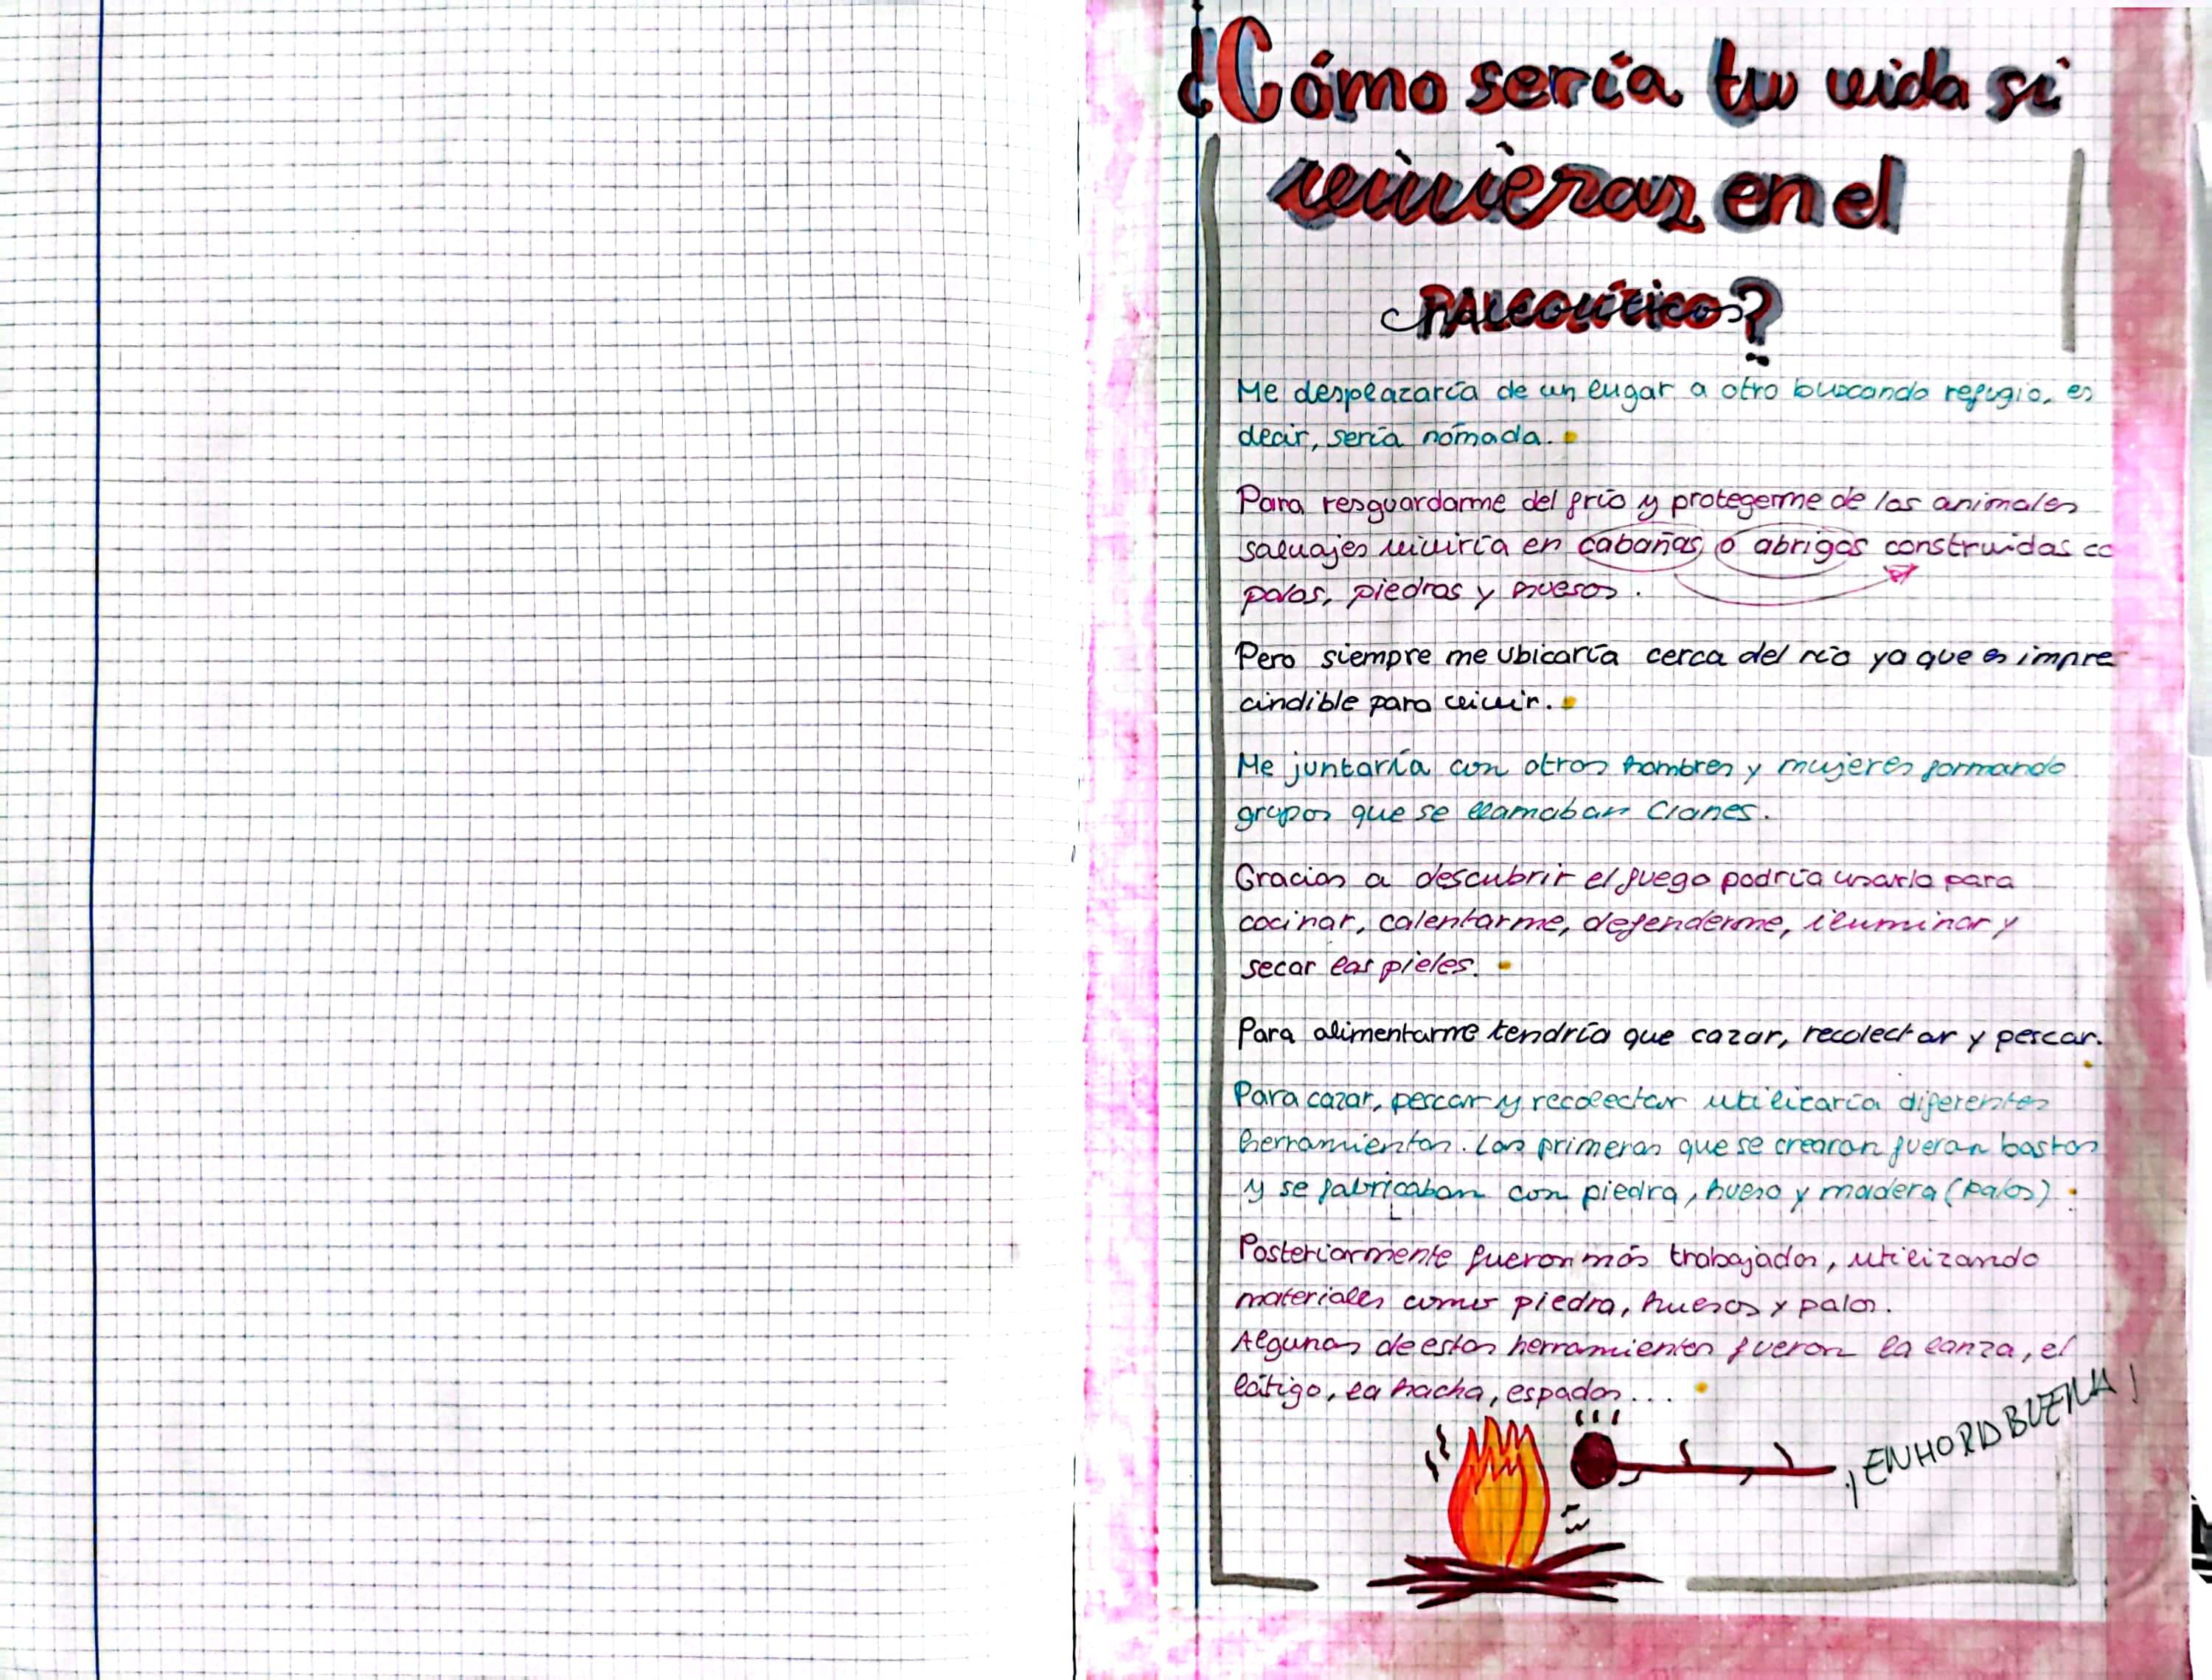 ¿Cómo sería tu vida si
vivieras en el
PALEOLÍTICO?
Me desplazaría de un lugar a otro buscando refugio, es
decir, sería nómada.
Para resguardarme del frío y protegerme de los animales
salvajes viviría en cabañas o abrigos construidas co
palos, piedras y huesos.
Pero siempre me ubicaría cerca del río ya que es impre
cindible para vivir.
Me juntaría con otros hombres y mujeres formando
grupos que se llamaban Clanes.
Gracias a descubrir el fuego podría usarlo para
cocinar, calentarme, defenderme, iluminar y
secar las pieles.
Para alimentarme tendría que cazar, recolectar y pescar.
Para cazar, pescar y recolectar utilizaría diferentes
herramientas. Las primeras que se crearon fueran bastos
y se fabricaban con piedra, hueso y madera (palos).
Posteriormente fueron más trabajados, utilizando
materiales como piedra, huesos y palos.
Algunas de estas herramientas fueron la lanza, el
látigo, la hacha, espadas...
¡ENHORABUENA!